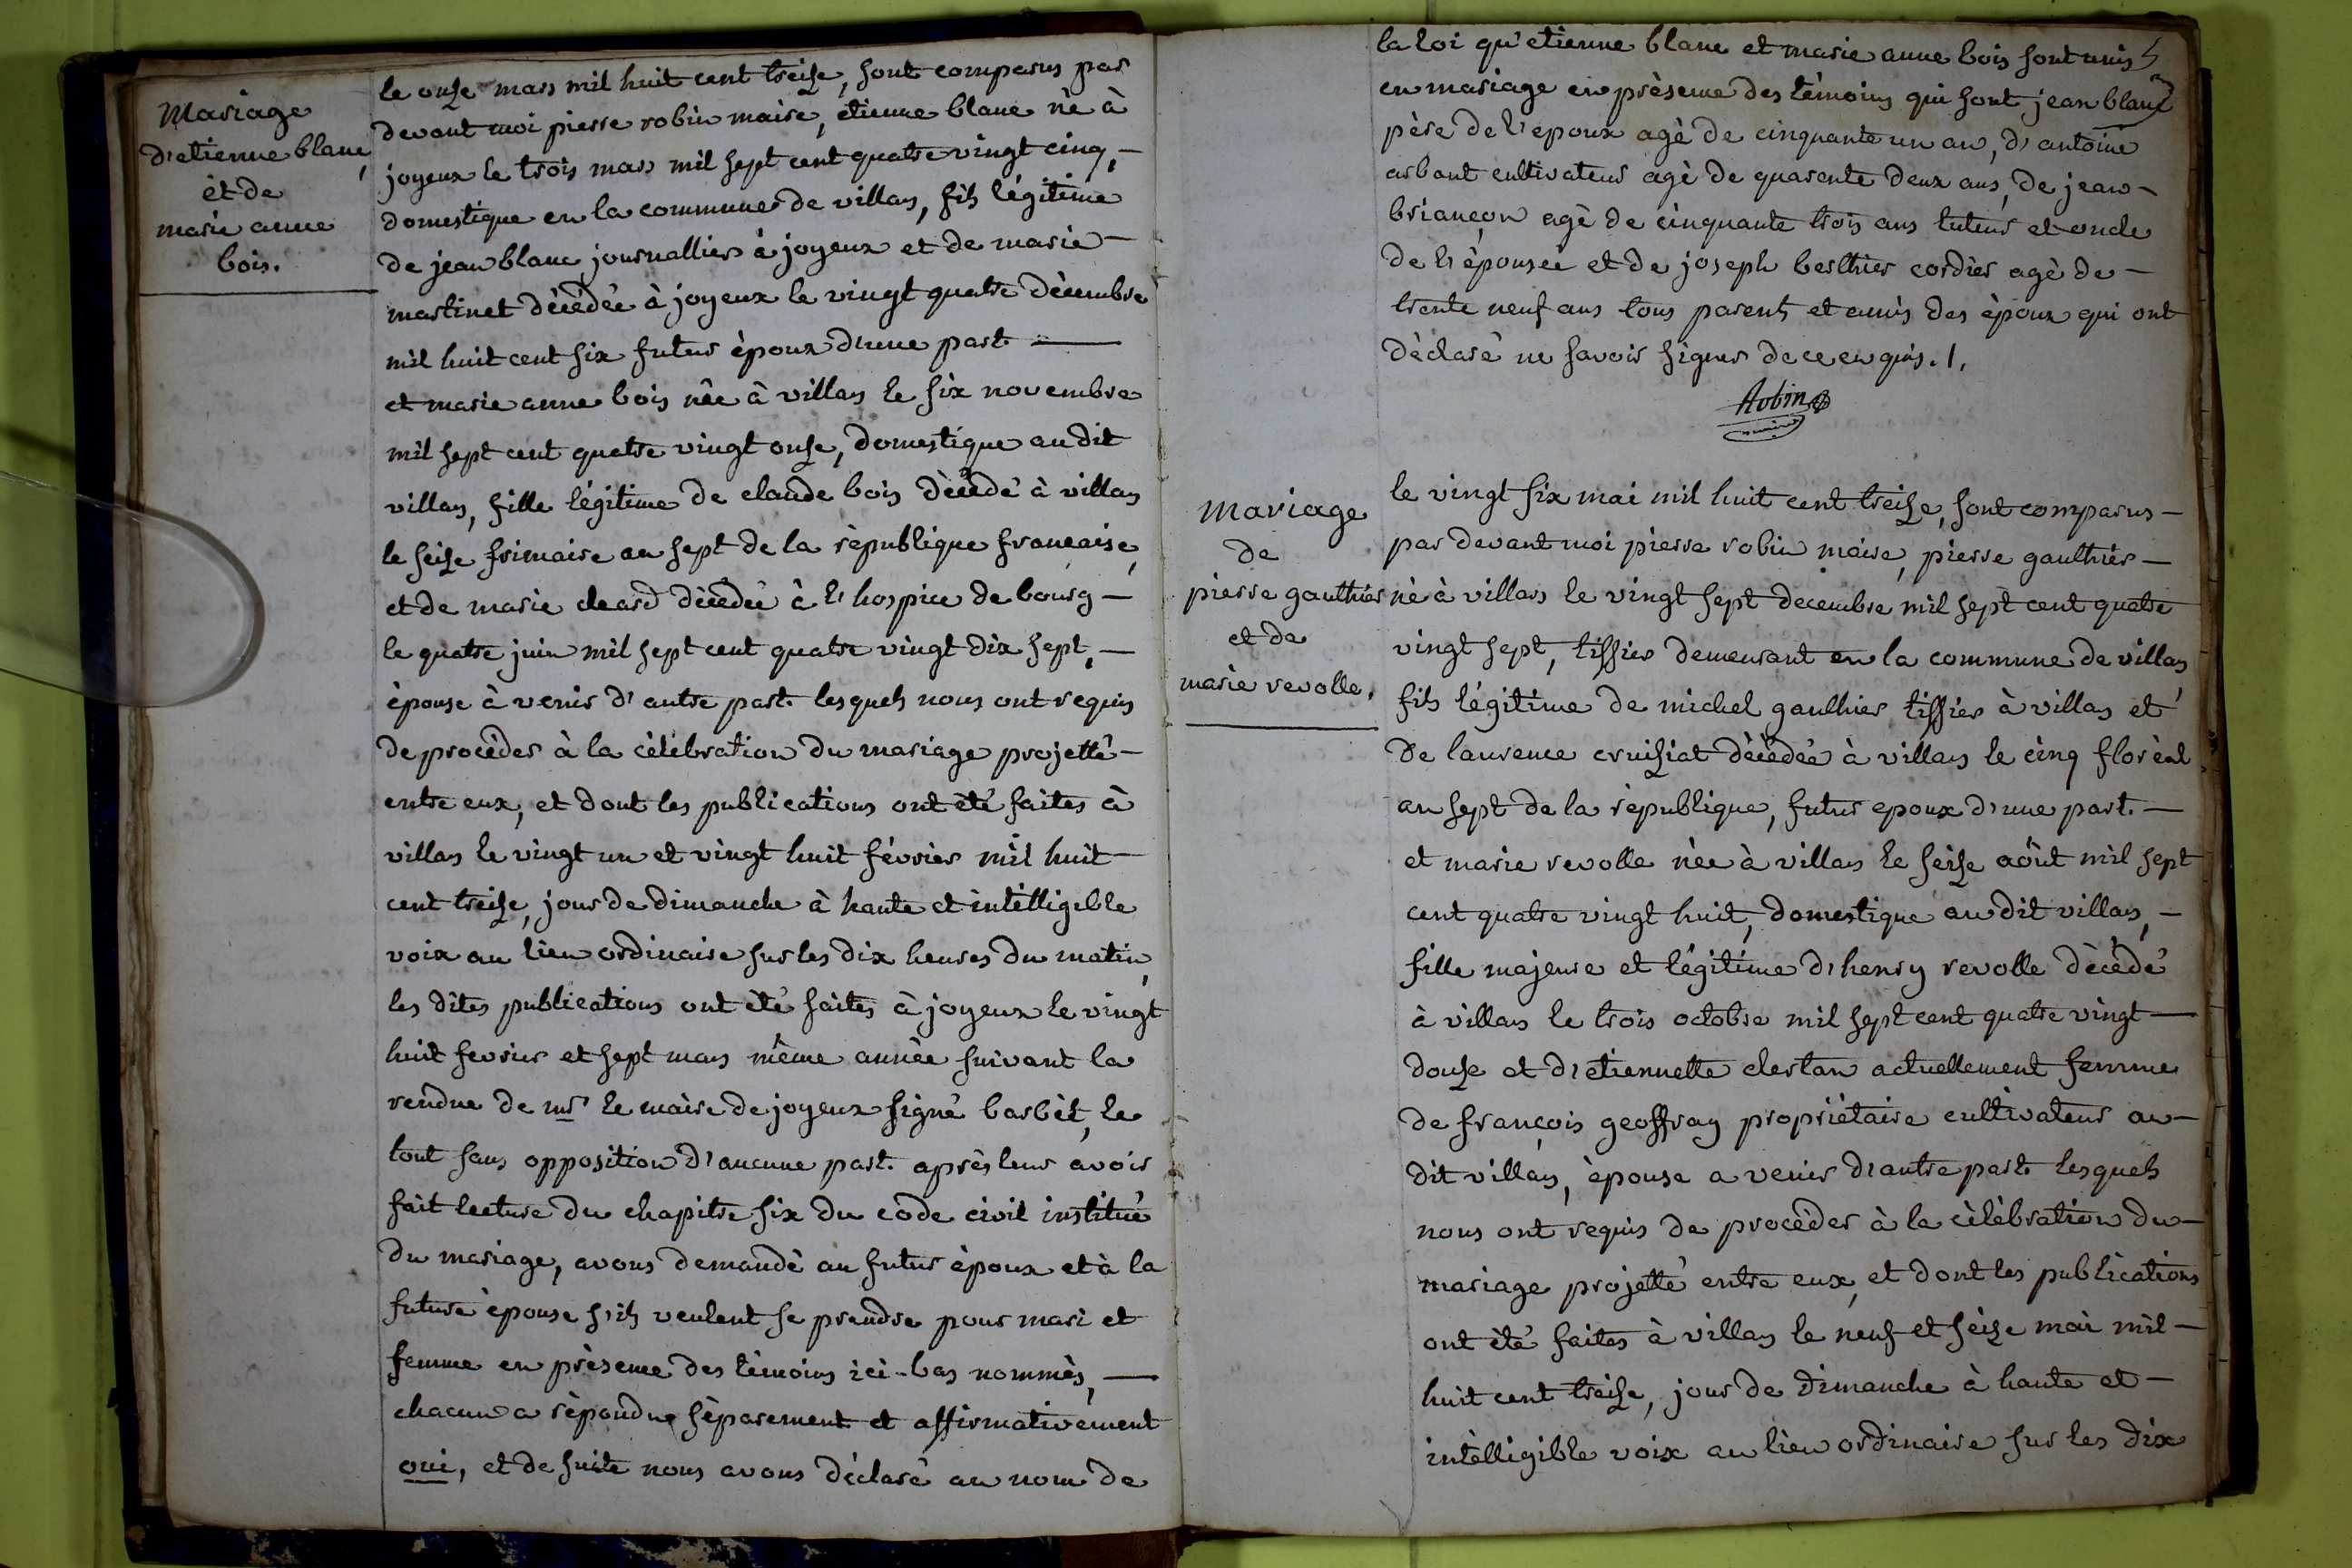 Mariage
d'etienne blanc,
et de
marie anne
bois.
le onse mars mil huit cent treise, sont comparus par
devant moi pierre robin maire, étienne blanc nè à
joyeux le trois mars mil sept cent quatre vingt cinq, —
domestique en la commune de villars, fils légitime
de jean blanc journallier à joyeux et de marie —
martinet dècèdèe à joyeux le vingt quatre dècembre
mil huit cent six futur èpoux d'une part. —
et marie anne bois nèe à villars le six novembre
mil sept cent quatre vingt onse, domestique au dit
villars, fille légitime de claude bois dècèdé à villars
le seise frimaire an sept de la rèpublique française,
et de marie decèdèe à l'hospice de bourg —
le quatre juin mil sept cent quatre vingt dix sept, —
èpouse à venir d'autre part. lesquels nous ont requis
de procèder à la cèlèbration du mariage projetté —
entre eux, et dont les publications ont étè faites à
villars le vingt un et vingt huit fèvrier mil huit
cent treise, jour de dimanche à haute et intèlligible
voix au lieu ordinaire sur les dix heures du matin,
les dites publications ont été faites à joyeux le vingt
huit fevrier et sept mars même année suivant la
rendue de mr le maire de joyeux signé barbèt, le
tout sans opposition d'aucune part. après leur avoir
fait lecture du chapitre six du code civil institué
du mariage, avons demandè au futur èpoux et à la
future èpouse s'ils veulent se prendre pour mari et
femme en prèsence des tèmoins ici-bas nommès, —
chacun a rèpondu sèparement et affirmativement
oui, et de suite nous avons dèclaré au nom de
la loi qu'etienne blanc et marie anne bois sont unis
en mariage en prèsence des tèmoins qui sont jean blanc
père de l'epoux agè de cinquante un an, d'antoine
arbant cultivateur agè de quarente deux ans, de jean —
briançon agè de cinquante trois ans tuteur et oncle
de l'èpousée et de joseph berthier cordier agè de —
trente neuf ans tous parents et amis des èpoux qui ont
dèclaré ne savoir signer de ce enquis. /.
Robin
maire
mariage
de
pierre gauthier
et de
marie revolle.
le vingt six mai mil huit cent treise, sont comparus —
par devant moi pierre robin maire, pierre gauthier —
nè à villars le vingt sept decembre mil sept cent quatre
vingt sept, tissier demeurant en la commune de villars
fils légitime de michel gauthier tissier à villars et
de laurence cruisiat dècèdèe à villars le cinq florèal
an sept de la rèpublique, futur epoux d'une part. —
et marie revolle nèe à villars le seise aôut mil sept
cent quatre vingt huit, domestique au dit villars, —
fille majeure et lègitime d'henry revolle dècèdé
à villars le trois octobre mil sept cent quatre vingt —
douse et d'etiennette clertan actuellement femme
de françois geoffray propriètaire cultivateur au —
dit villars, èpouse a venir d'autre part. lesquels
nous ont requis de procèder à la cèlèbration du —
mariage projetté entre eux, et dont les publications
ont été faites à villars le neuf et seise mai mil —
huit cent treise, jour de dimanche à haute et —
intèlligible voix au lieu ordinaire sur les dix